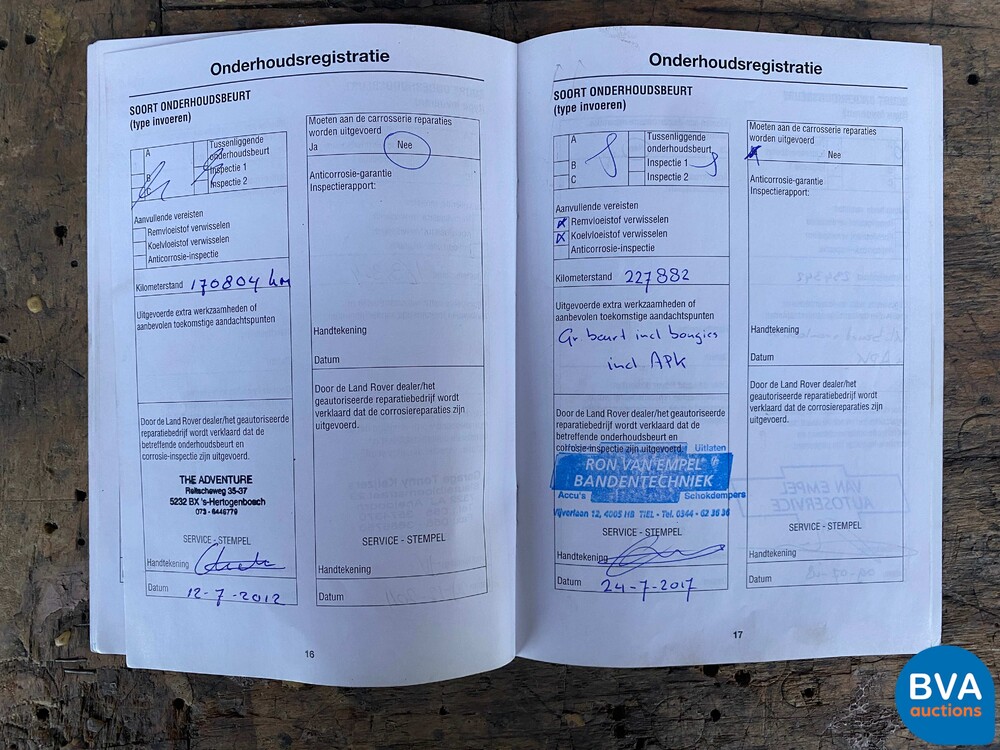 Onderhoudsregistratie
SOORT ONDERHOUDSBEURT
(type invoeren)
A
B
C
Tussenliggende
onderhoudsbeurt
Inspectie 1
Inspectie 2
Aanvullende vereisten
Remvloeistof verwisselen
Koelvloeistof verwisselen
Anticorrosie-inspectie
Kilometerstand 170804 km
Uitgevoerde extra werkzaamheden of
aanbevolen toekomstige aandachtspunten
Door de Land Rover dealer/het geautoriseerde
reparatiebedrijf wordt verklaard dat de
betreffende onderhoudsbeurt en
corrosie-inspectie zijn uitgevoerd.
THE ADVENTURE
Reitscheweg 35-37
5232 BX 's-Hertogenbosch
073 - 6446779
SERVICE - STEMPEL
Handtekening
Datum 12-7-2012
Moeten aan de carrosserie reparaties
worden uitgevoerd
Ja Nee
Anticorrosie-garantie
Inspectierapport:
Handtekening
Datum
Door de Land Rover dealer/het
geautoriseerde reparatiebedrijf wordt
verklaard dat de corrosiereparaties zijn
uitgevoerd.
SERVICE - STEMPEL
Handtekening
Datum
16
Onderhoudsregistratie
SOORT ONDERHOUDSBEURT
(type invoeren)
A
B
C
Tussenliggende
onderhoudsbeurt
Inspectie 1
Inspectie 2
Aanvullende vereisten
Remvloeistof verwisselen
Koelvloeistof verwisselen
Anticorrosie-inspectie
Kilometerstand 227882
Uitgevoerde extra werkzaamheden of
aanbevolen toekomstige aandachtspunten
Gr beurt incl bougies
incl APK
Door de Land Rover dealer/het geautoriseerde
reparatiebedrijf wordt verklaard dat de
betreffende onderhoudsbeurt en
corrosie-inspectie zijn uitgevoerd.
Uitlaten
RON VAN EMPEL
BANDENTECHNIEK
Accu's Schokdempers
Vijverlaan 12, 4005 HB TIEL - Tel. 0344 - 62 36 36
SERVICE - STEMPEL
Handtekening
Datum 24-7-2017
Moeten aan de carrosserie reparaties
worden uitgevoerd
Nee
Anticorrosie-garantie
Inspectierapport:
Handtekening
Datum
Door de Land Rover dealer/het
geautoriseerde reparatiebedrijf wordt
verklaard dat de corrosiereparaties zijn
uitgevoerd.
SERVICE - STEMPEL
Handtekening
Datum
17
BVA
auctions